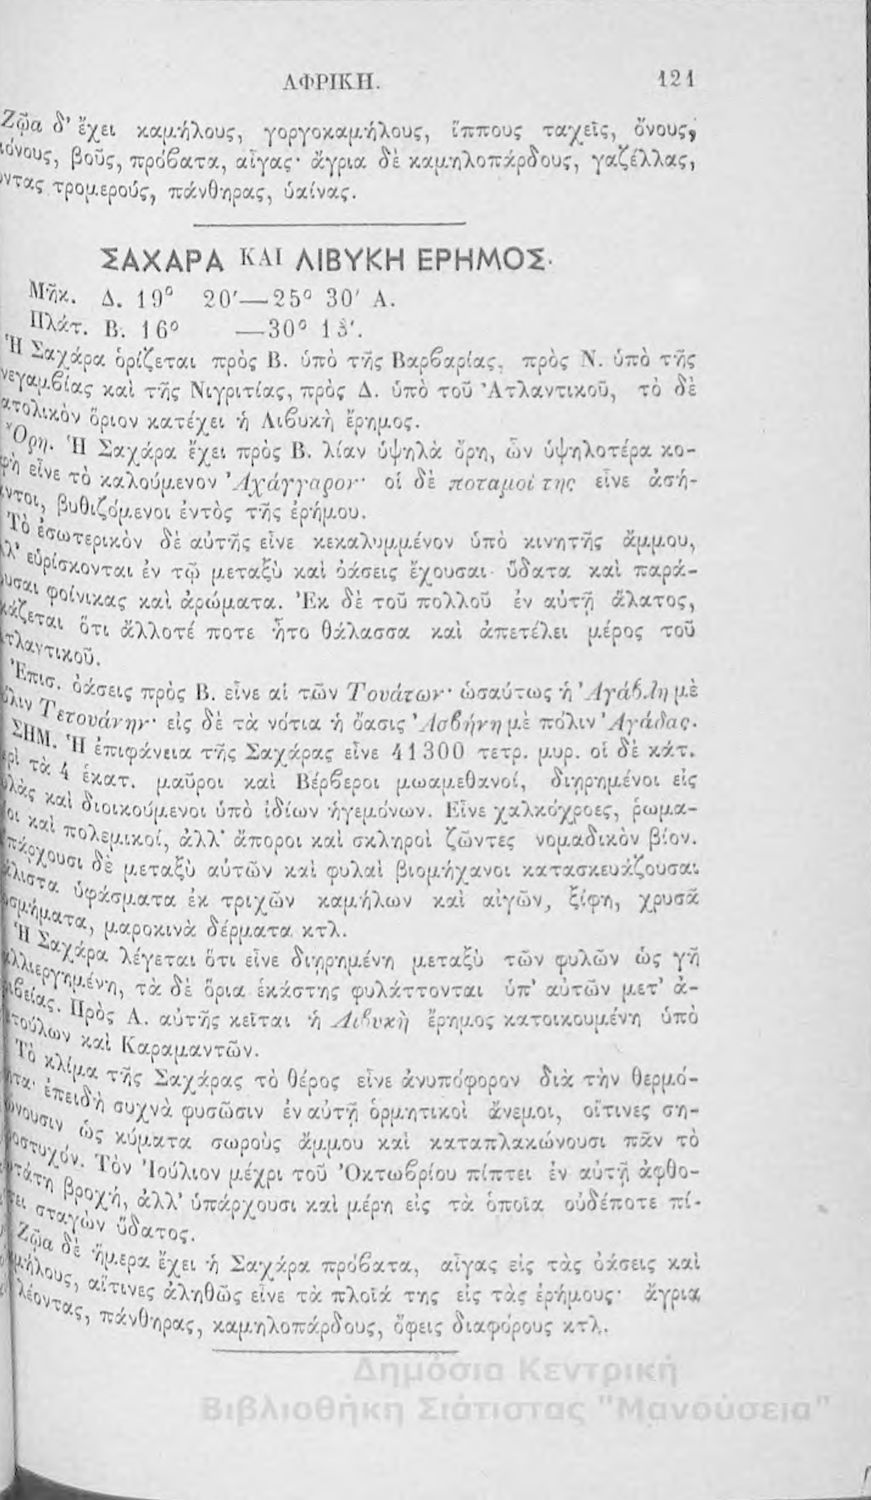 ΑΦΡΙΚΗ. 121
Ζῷα δ' ἔχει καμήλους, γοργοκαμήλους, ἵππους ταχεῖς, ὄνους,
ιόνους, βοῦς, πρόβατα, αἶγας· ἄγρια δὲ καμηλοπάρδους, γαζέλλας,
οντας τρομερούς, πάνθηρας, ὑαίνας.
ΣΑΧΑΡΑ ΚΑΙ ΛΙΒΥΚΗ ΕΡΗΜΟΣ.
Μῆκ. Δ. 19° 20'—25° 30' Α.
Πλάτ. Β. 16° —30° 15'.
Ἡ Σαχάρα ὁρίζεται πρὸς Β. ὑπὸ τῆς Βαρβαρίας, πρὸς Ν. ὑπὸ τῆς
νεγαμβίας καὶ τῆς Νιγριτίας, πρὸς Δ. ὑπὸ τοῦ Ἀτλαντικοῦ, τὸ δὲ
ατολικὸν ὅριον κατέχει ἡ Λιβυκὴ ἔρημος.
Ὄρη. Ἡ Σαχάρα ἔχει πρὸς Β. λίαν ὑψηλὰ ὄρη, ὧν ὑψηλοτέρα κο-
φὴ εἶνε τὸ καλούμενον Ἀχάγγαρον· οἱ δὲ ποταμοί της εἶνε ἀσή-
αντοι, βυθιζόμενοι ἐντὸς τῆς ἐρήμου.
Τὸ ἐσωτερικὸν δὲ αὐτῆς εἶνε κεκαλυμμένον ὑπὸ κινητῆς ἄμμου,
λλ' εὑρίσκονται ἐν τῷ μεταξὺ καὶ ὀάσεις ἔχουσαι ὕδατα καὶ παρά-
ουσαι φοίνικας καὶ ἀρώματα. Ἐκ δὲ τοῦ πολλοῦ ἐν αὐτῇ ἅλατος,
κάζεται ὅτι ἄλλοτέ ποτε ἦτο θάλασσα καὶ ἀπετέλει μέρος τοῦ
τλαντικοῦ.
Ἐπισ. ὀάσεις πρὸς Β. εἶνε αἱ τῶν Τουάτων· ὡσαύτως ἡ Ἀγάβλη μὲ
όλιν Τετουάνην· εἰς δὲ τὰ νότια ἡ ὄασις Ἀσβήνη μὲ πόλιν Ἀγάδας.
ΣΗΜ. Ἡ ἐπιφάνεια τῆς Σαχάρας εἶνε 41300 τετρ. μυρ. οἱ δὲ κάτ.
ρὶ τὰ 4 ἑκατ. μαῦροι καὶ Βέρβεροι μωαμεθανοί, διῃρημένοι εἰς
λὰς καὶ διοικούμενοι ὑπὸ ἰδίων ἡγεμόνων. Εἶνε χαλκόχροες, ῥωμα-
οι καὶ πολεμικοί, ἀλλ' ἄποροι καὶ σκληροὶ ζῶντες νομαδικὸν βίον.
πάρχουσι δὲ μεταξὺ αὐτῶν καὶ φυλαὶ βιομήχανοι κατασκευάζουσαι
άλιστα ὑφάσματα ἐκ τριχῶν καμήλων καὶ αἰγῶν, ξίφη, χρυσᾶ
σμήματα, μαροκινὰ δέρματα κτλ.
Ἡ Σαχάρα λέγεται ὅτι εἶνε διῃρημένη μεταξὺ τῶν φυλῶν ὡς γῆ
λλιεργημένη, τὰ δὲ ὅρια ἑκάστης φυλάττονται ὑπ' αὐτῶν μετ' ἀ-
ιβείας. Πρὸς Α. αὐτῆς κεῖται ἡ Λιβυκὴ ἔρημος κατοικουμένη ὑπὸ
τούλων καὶ Καραμαντῶν.
Τὸ κλίμα τῆς Σαχάρας τὸ θέρος εἶνε ἀνυπόφορον διὰ τὴν θερμό-
ητα· ἐπειδὴ συχνὰ φυσῶσιν ἐν αὐτῇ ὁρμητικοὶ ἄνεμοι, οἵτινες ση-
ώνουσιν ὡς κύματα σωροὺς ἄμμου καὶ καταπλακώνουσι πᾶν τὸ
οστυχόν. Τὸν Ἰούλιον μέχρι τοῦ Ὀκτωβρίου πίπτει ἐν αὐτῇ ἀφθο-
τάτη βροχή, ἀλλ' ὑπάρχουσι καὶ μέρη εἰς τὰ ὁποῖα οὐδέποτε πί-
ει σταγὼν ὕδατος.
Ζῷα δὲ ἥμερα ἔχει ἡ Σαχάρα πρόβατα, αἶγας εἰς τὰς ὀάσεις καὶ
μήλους, αἵτινες ἀληθῶς εἶνε τὰ πλοῖά της εἰς τὰς ἐρήμους· ἄγρια
λέοντας, πάνθηρας, καμηλοπάρδους, ὄφεις διαφόρους κτλ.
Δημόσια Κεντρική
Βιβλιοθήκη Σιάτιστας "Μανούσεια"